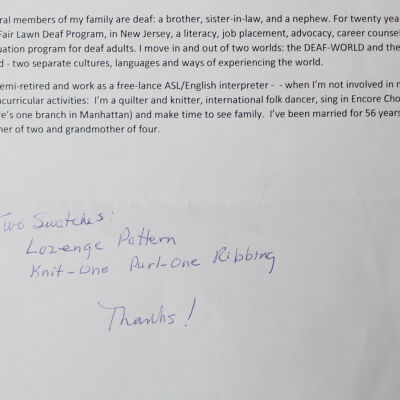 ral members of my family are deaf: a brother, sister-in-law, and a nephew. For twenty yea
Fair Lawn Deaf Program, in New Jersey, a literacy, job placement, advocacy, career counsel
uation program for deaf adults. I move in and out of two worlds: the DEAF-WORLD and the
d - two separate cultures, languages and ways of experiencing the world.
emi-retired and work as a free-lance ASL/English interpreter - - when I'm not involved in m
curricular activities: I'm a quilter and knitter, international folk dancer, sing in Encore Cho
re's one branch in Manhattan) and make time to see family. I've been married for 56 years
her of two and grandmother of four.
Two Swatches:
Lozenge Pattern
Knit-One Purl-One Ribbing
Thanks!